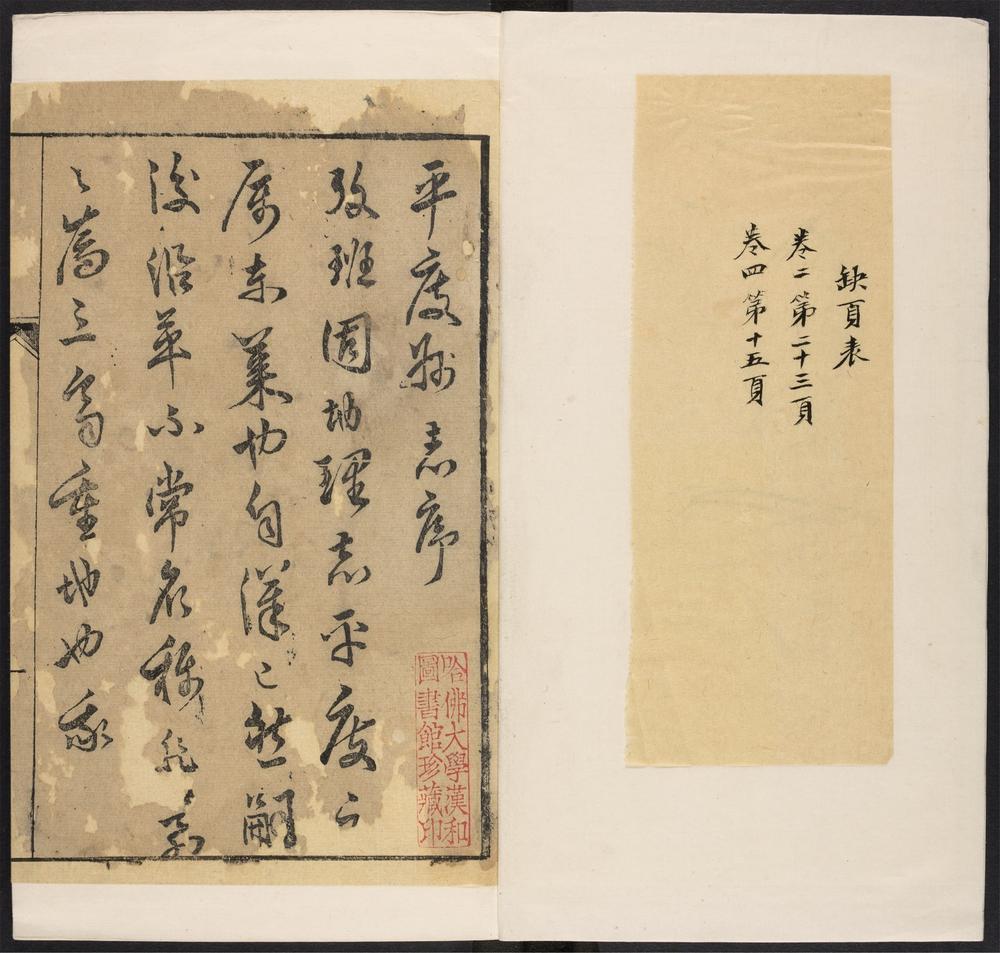 缺頁表
卷二第二十三頁
卷四第十五頁
平度州志序
攷班固地理志平度之
属東萊也自漢已然嗣
後沿革不常名稱
志重地也我
哈佛大學漢和
圖書館珍藏印